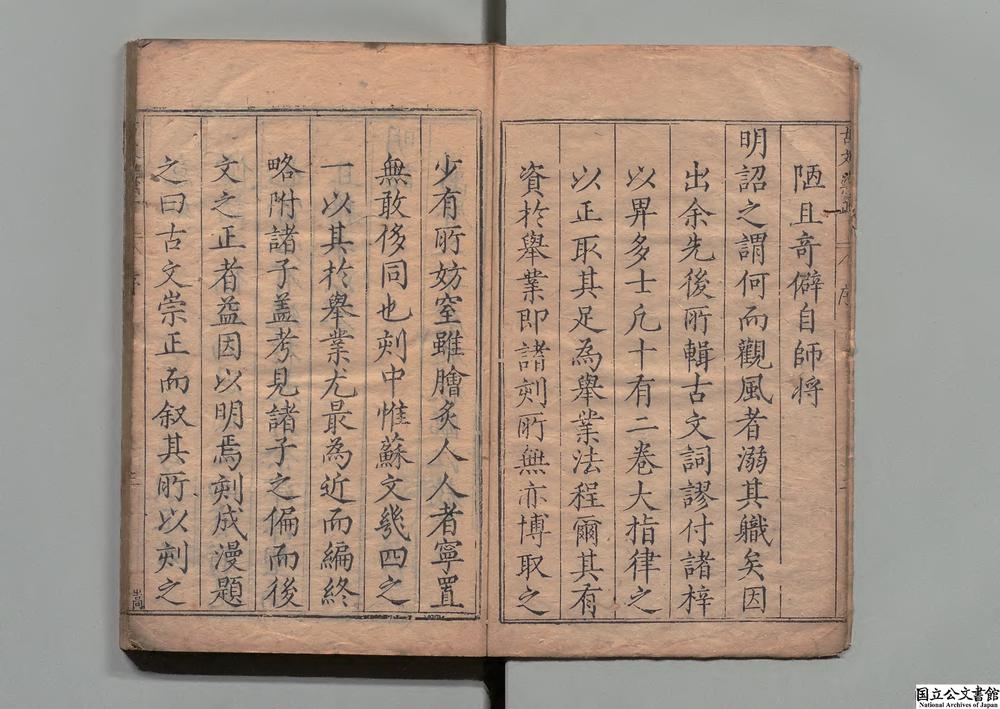 陋且奇僻自師将
明詔之謂何而觀風者溺其軄矣因
出余先後所輯古文詞謬付諸梓
以畀多士凡十有二卷大指律之
以正取其足為舉業法程爾其有
資於舉業即諸刻所無亦博取之
少有所妨窒雖膾炙人人者寧置
無敢侈同也刻中惟蘇文幾四之
一以其於舉業尤最為近而編終
略附諸子盖考見諸子之偏而後
文之正者益因以明焉刻成漫題
之曰古文崇正而叙其所以刻之
国立公文書館
National Archives of Japan